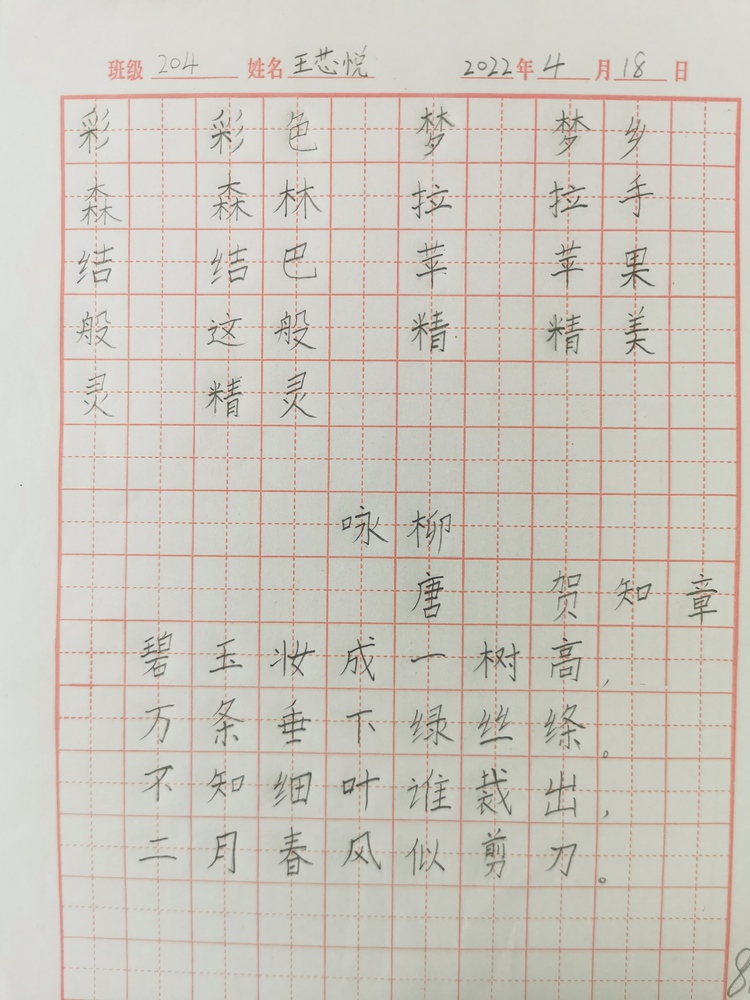 班级 204 姓名 王芯悦 2022年4月18日
彩 彩色 梦 梦乡
森 森林 拉 拉手
结 结巴 苹 苹果
般 这般 精 精美
灵 精灵
咏柳
唐 贺知章
碧玉妆成一树高,
万条垂下绿丝绦。
不知细叶谁裁出,
二月春风似剪刀。